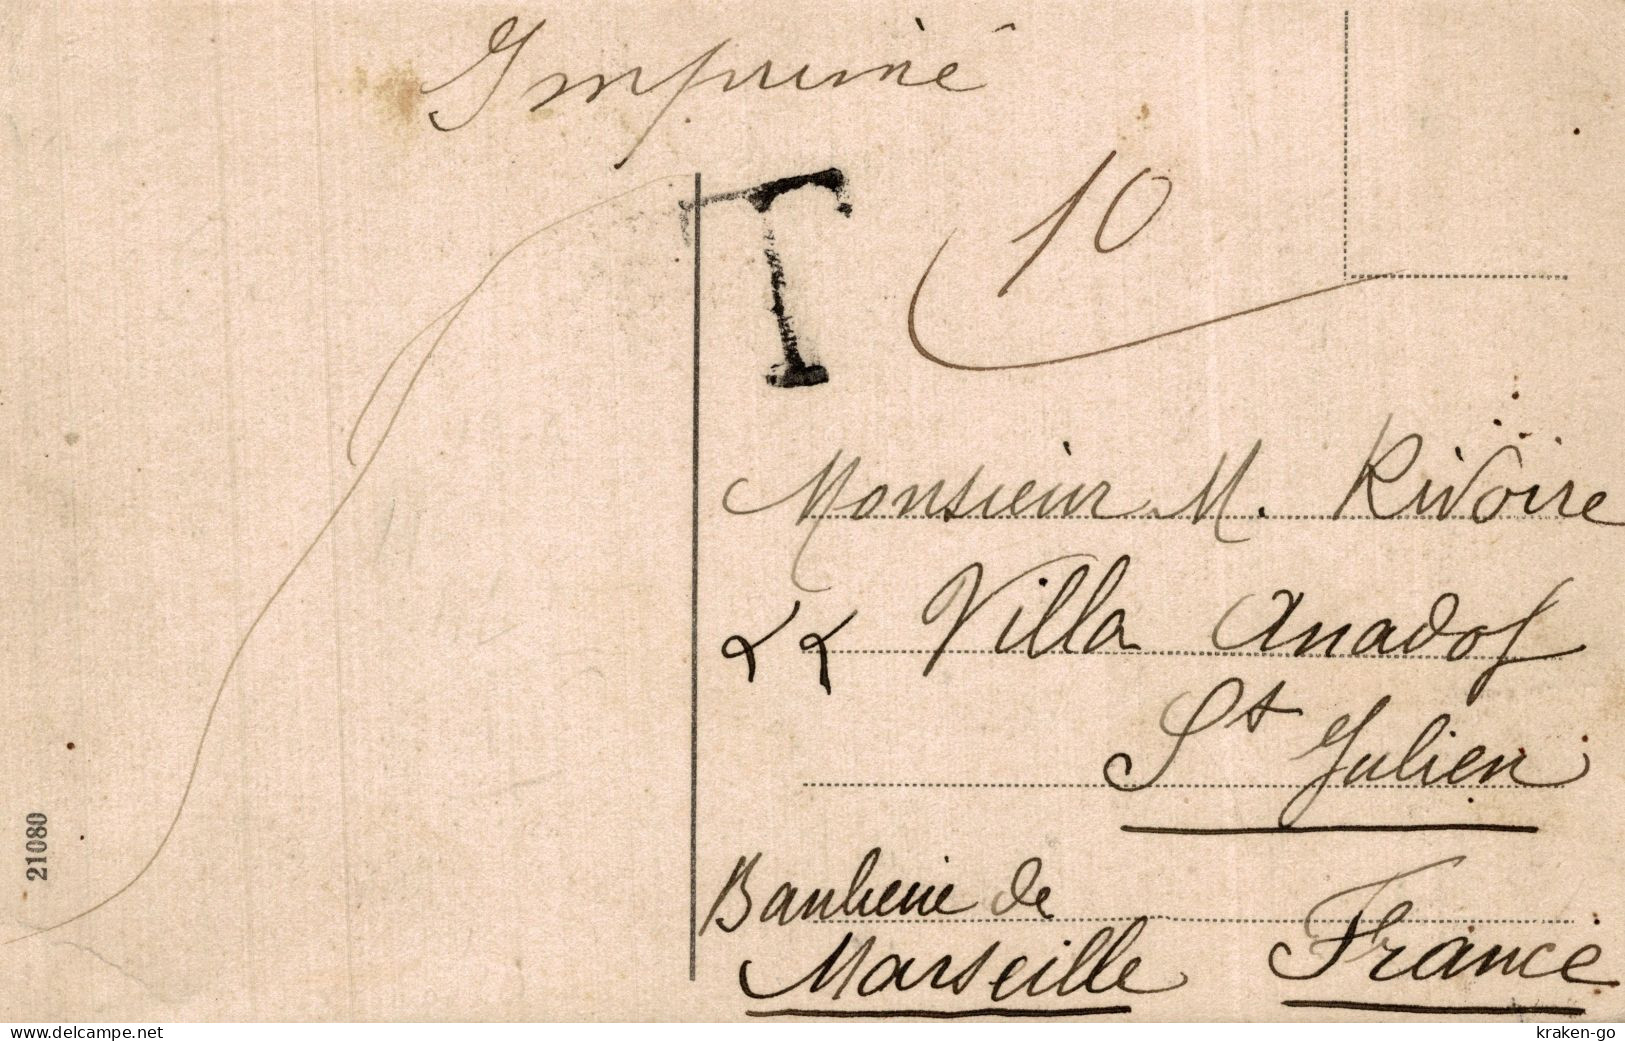 Imprimé
T
10
Monsieur M. Rivoire
Villa Anadol
St Julien
Banlieue de
Marseille France
21080
www.delcampe.net
kraken-go